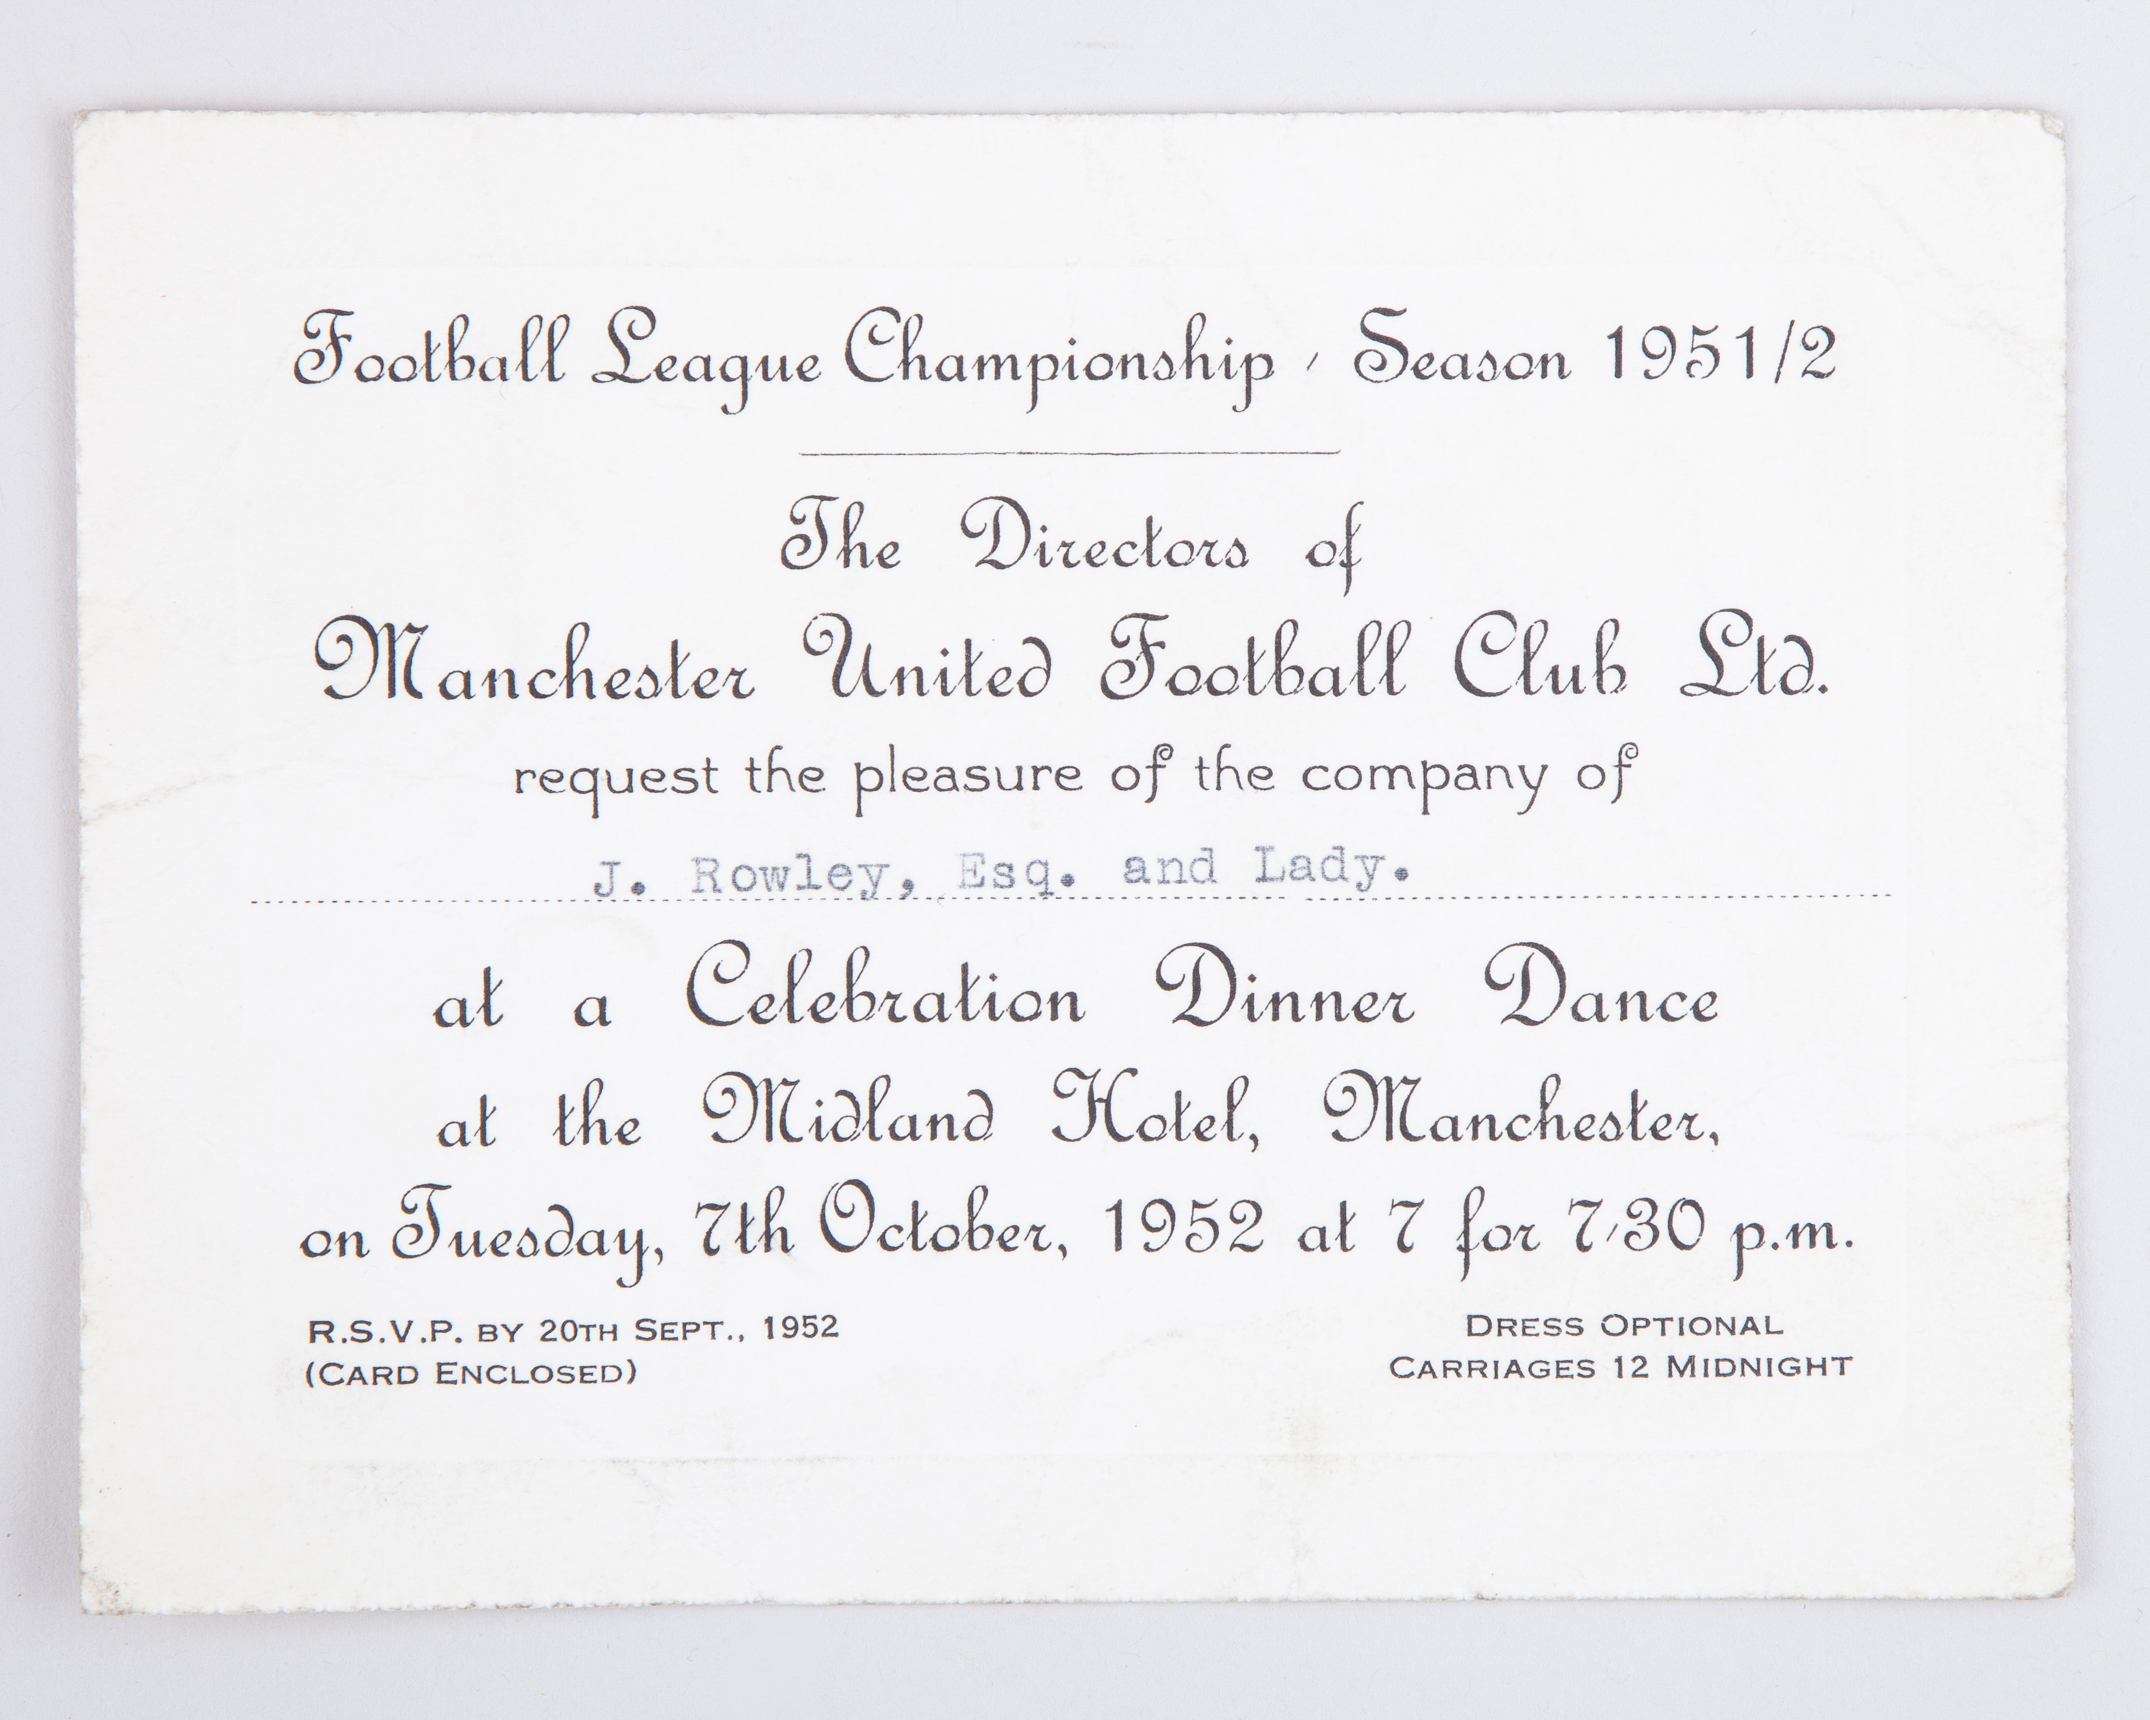 Football League Championship - Season 1951/2
The Directors of
Manchester United Football Club Ltd.
request the pleasure of the company of
J. Rowley, Esq. and Lady.
at a Celebration Dinner Dance
at the Midland Hotel, Manchester,
on Tuesday, 7th October, 1952 at 7 for 7-30 p.m.
R.S.V.P. BY 20TH SEPT., 1952
(CARD ENCLOSED)
DRESS OPTIONAL
CARRIAGES 12 MIDNIGHT